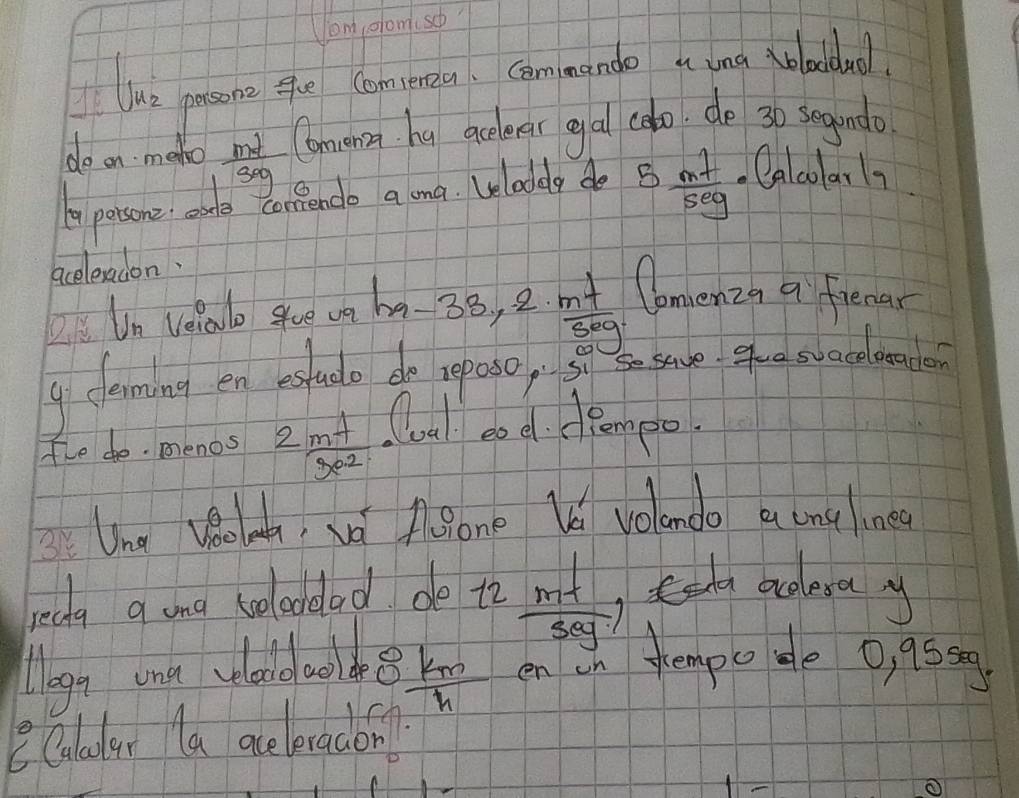 Compromiso
1: Una persona que comienza. Caminando a una velocidad.
de un metro mt/seg Comienza. ha acelerar y al cabo. de 30 segundo.
la persona. esta corriendo a una. Velocidad de 5 mt/seg. Calcular la
aceleracion.
2: Un Veiculo que va ha - 38,2. mt/seg Comienza a frenar
y termina en estado de reposo, si se save. que su aceleracion
fue de. menos 2 mt/se.2. Cual es el. tiempo.
3: Una va Avione Va volando a una linea
recta a una velocidad. de 12 mt/seg, esta acelera y
llega una velocidad de 8 km/h en un tiempo de 0,95 seg.
¿Calcular la aceleración?